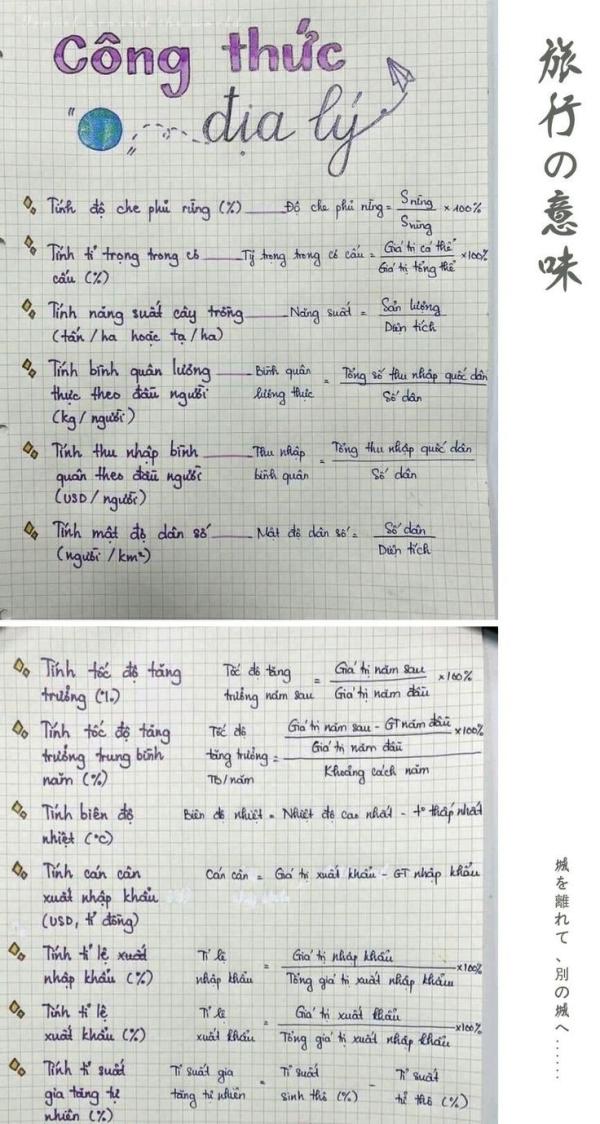 Công thức
địa lý
Tính độ che phủ rừng (%) Độ che phủ rừng = S rừng / S vùng × 100%
Tính tỉ trọng trong cơ cấu (%) Tỷ trọng trong cơ cấu = Giá trị cá thể / Giá trị tổng thể × 100%
Tính năng suất cây trồng (tấn / ha hoặc tạ / ha) Năng suất = Sản lượng / Diện tích
Tính bình quân lương thực theo đầu người (kg / người) Bình quân lương thực = Tổng số thu nhập quốc dân / Số dân
Tính thu nhập bình quân theo đầu người (USD / người) Thu nhập bình quân = Tổng thu nhập quốc dân / Số dân
Tính mật độ dân số (người / km²) Mật độ dân số = Số dân / Diện tích
Tính tốc độ tăng trưởng (%) Tốc độ tăng trưởng năm sau = Giá trị năm sau / Giá trị năm đầu × 100%
Tính tốc độ tăng trưởng trung bình năm (%) Tốc độ tăng trưởng TB/năm = Giá trị năm sau - GT năm đầu / Giá trị năm đầu × 100% / Khoảng cách năm
Tính biên độ nhiệt (°C) Biên độ nhiệt = Nhiệt độ cao nhất - t° thấp nhất
Tính cán cân xuất nhập khẩu (USD, tỉ đồng) Cán cân = Giá trị xuất khẩu - GT nhập khẩu
Tính tỉ lệ xuất nhập khẩu (%) Tỉ lệ nhập khẩu = Giá trị nhập khẩu / Tổng giá trị xuất nhập khẩu × 100%
Tính tỉ lệ xuất khẩu (%) Tỉ lệ xuất khẩu = Giá trị xuất khẩu / Tổng giá trị xuất nhập khẩu × 100%
Tính tỉ suất gia tăng tự nhiên (%) Tỉ suất gia tăng tự nhiên = Tỉ suất sinh thô (%) - Tỉ suất tử thô (%)
旅行の意味
城を離れて、別の城へ……